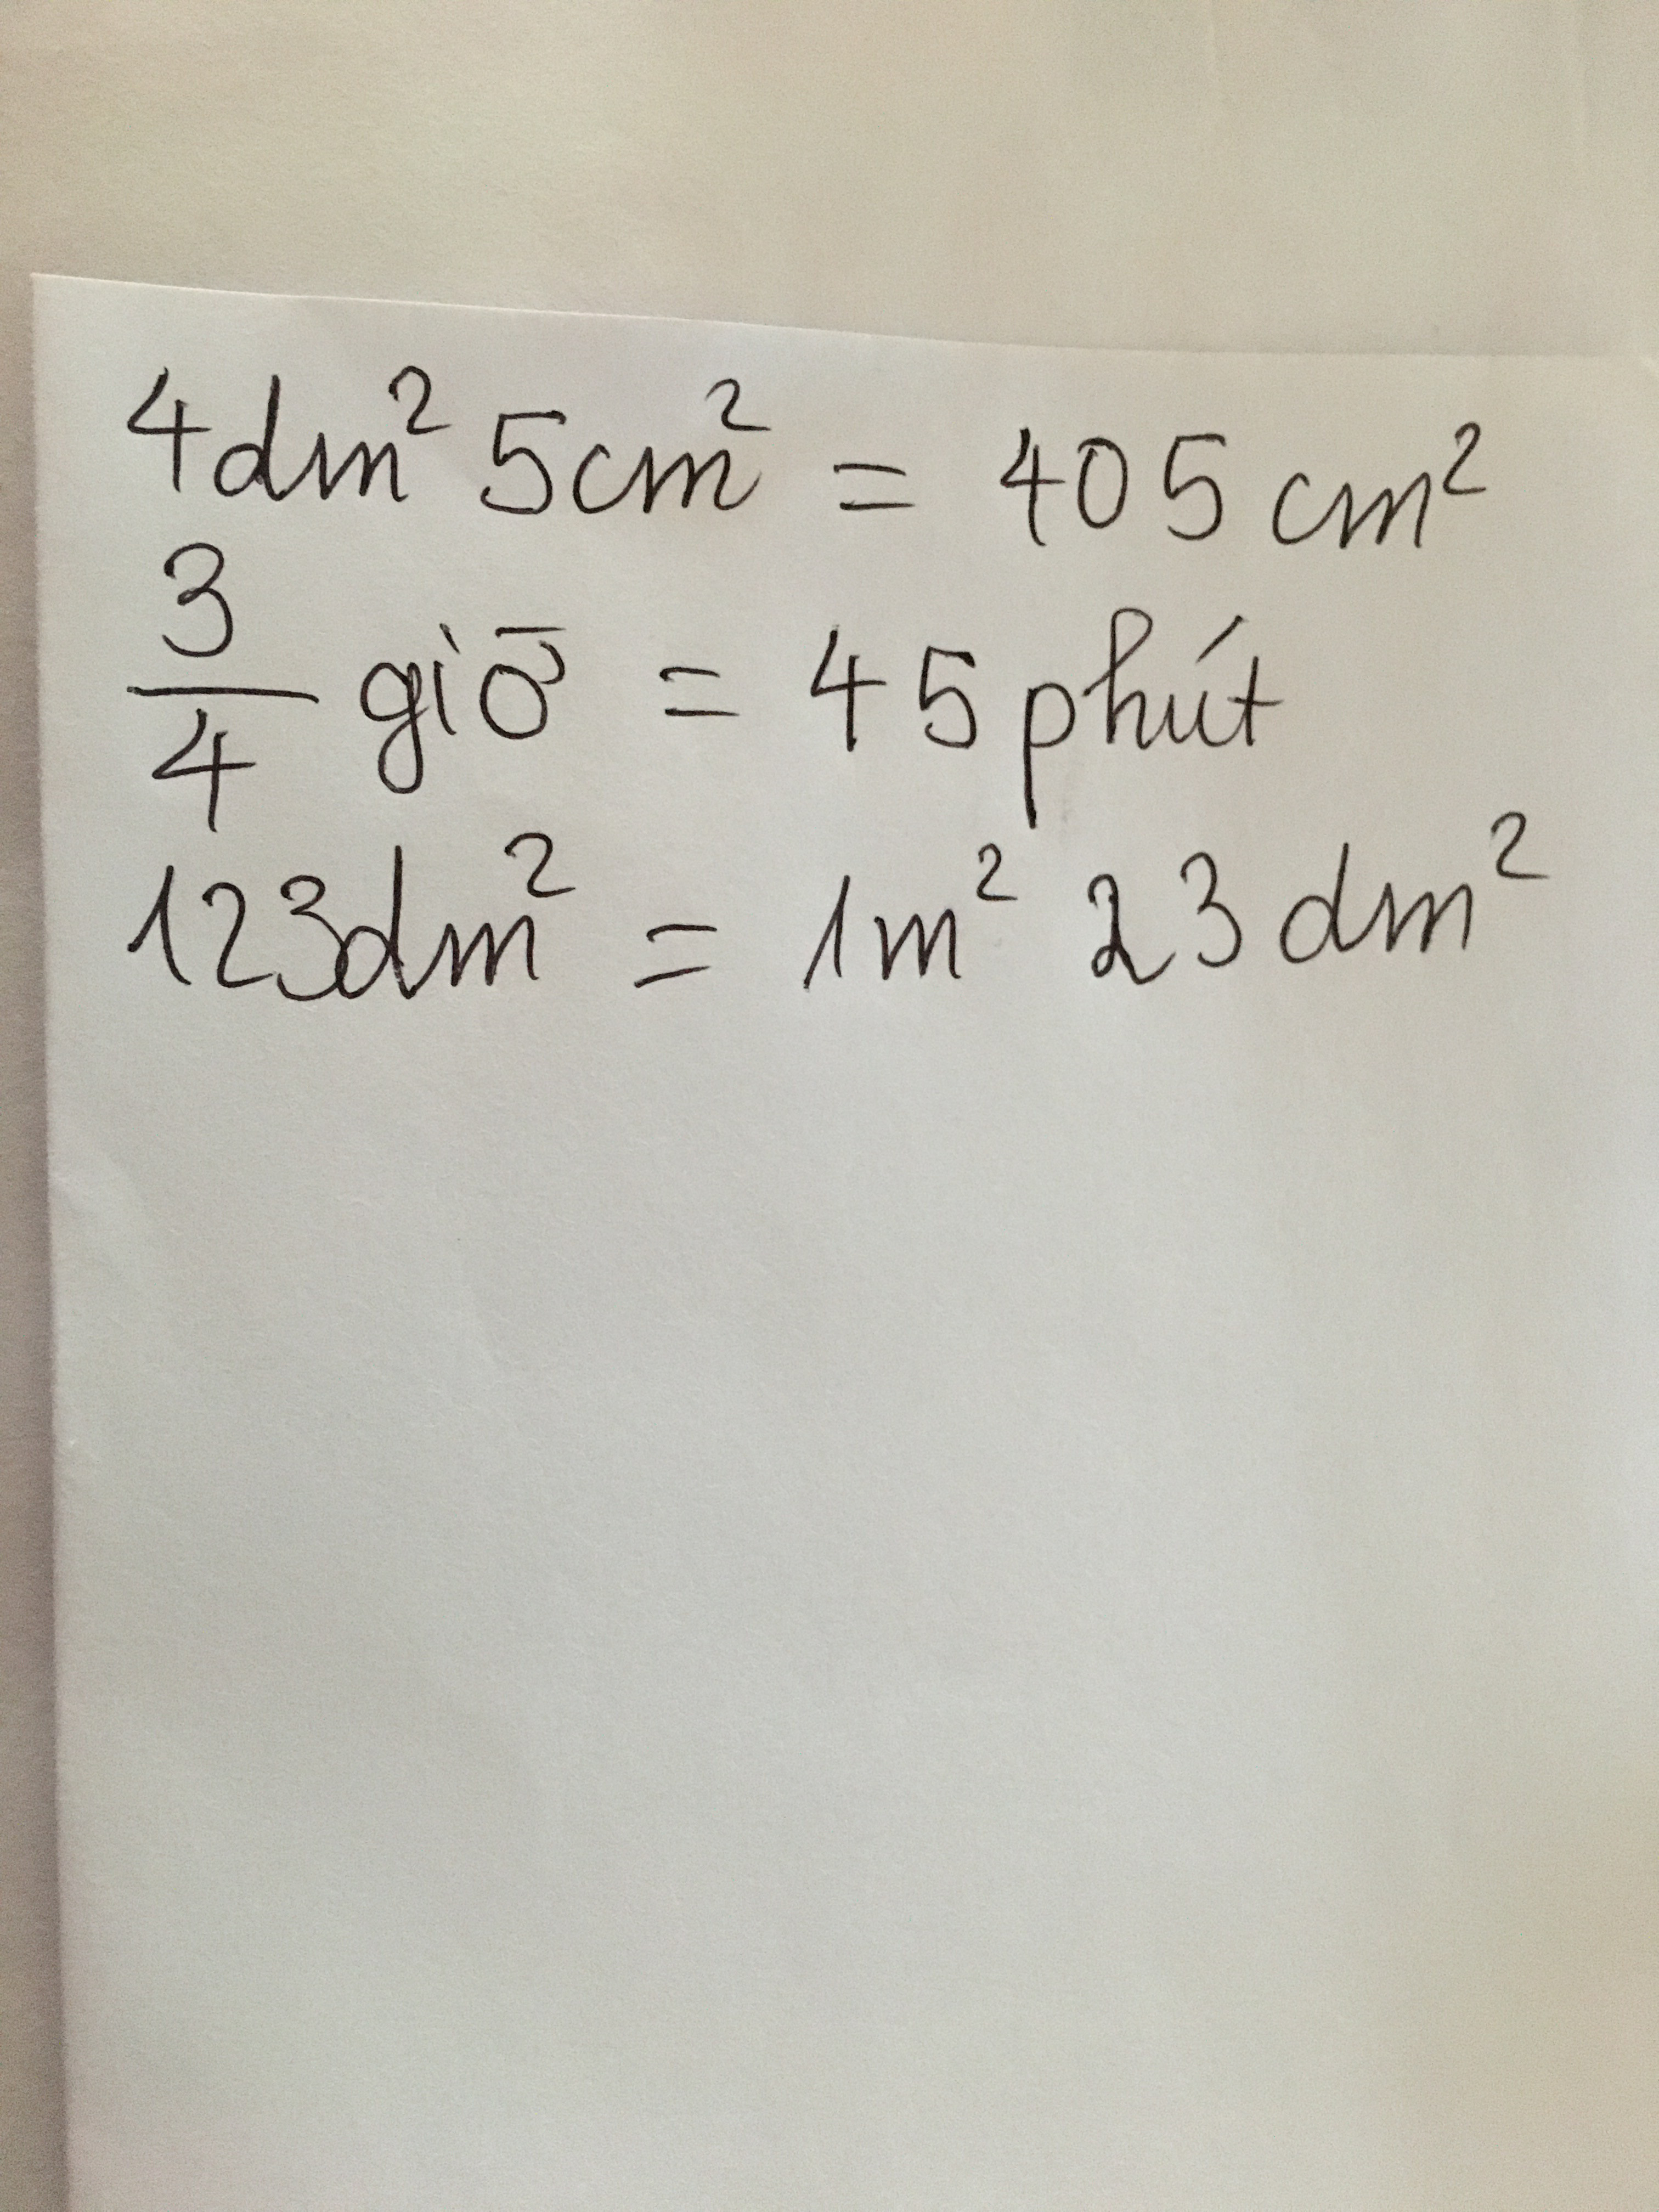 4dm² 5cm² = 405 cm²
3/4 giờ = 45 phút
123dm² = 1m² 23 dm²